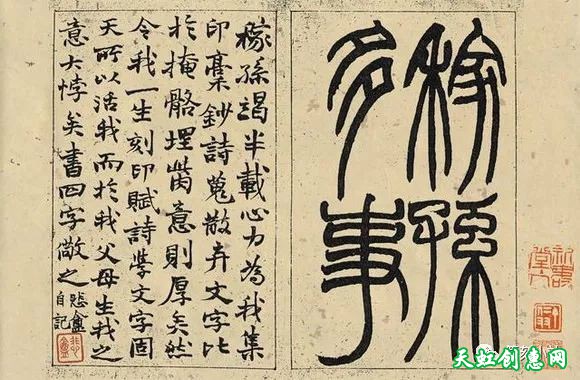 稼孫
多事
稼孫竭半載心力為我集
印稾鈔詩蒐散弃文字比
於掩骼埋胔意則厚矣然
令我一生刻印賦詩學文字固
天所以活我而於我父母生我之
意大悖矣書四字儆之
悲盦
自記
天虹创意网